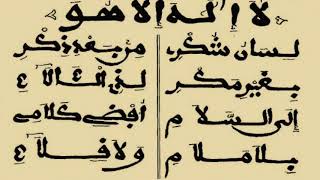 لا إله إلا هو
لسان شكر من بعد ذكر
بغير مكر
إلى السلام كلامي
بلا ملام ولا